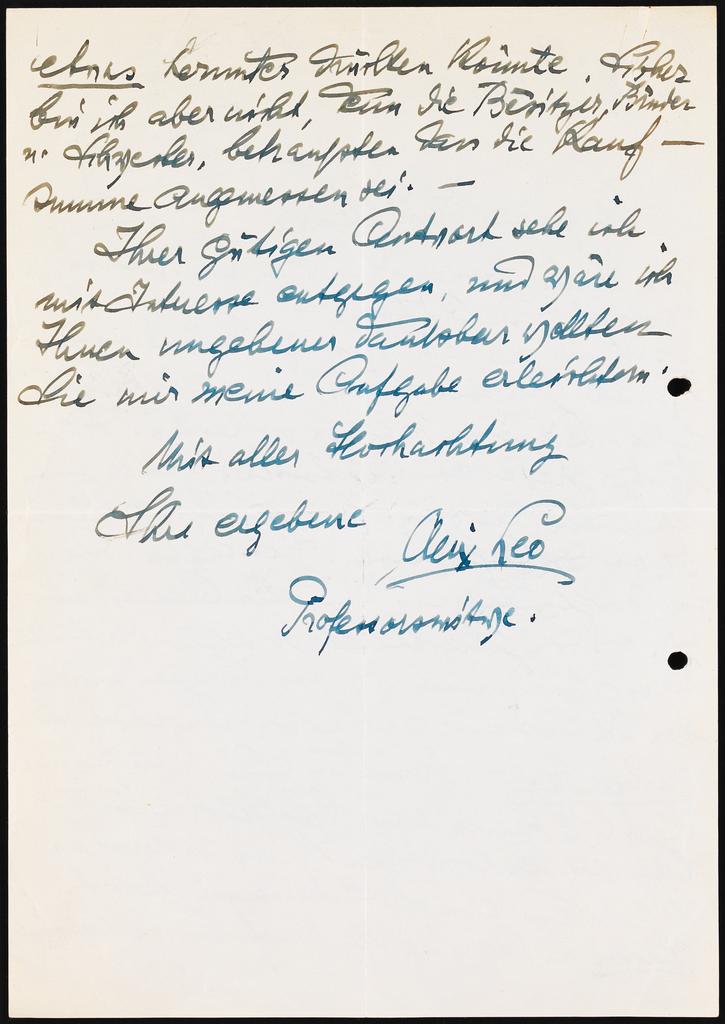 etwas herunter drücken könnte. Sicher
bin ich aber nicht, denn die Besitzer, Bruder
u. Schwester, behaupten dass die Kauf-
summe angemessen sei. —
Ihrer gütigen Antwort sehe ich
mit Interesse entgegen, und wäre ich
Ihnen ungeheuer dankbar wollten
Sie mir meine Aufgabe erleichtern.
Mit aller Hochachtung
Ihre ergebene
Leo
Professorswitwe.